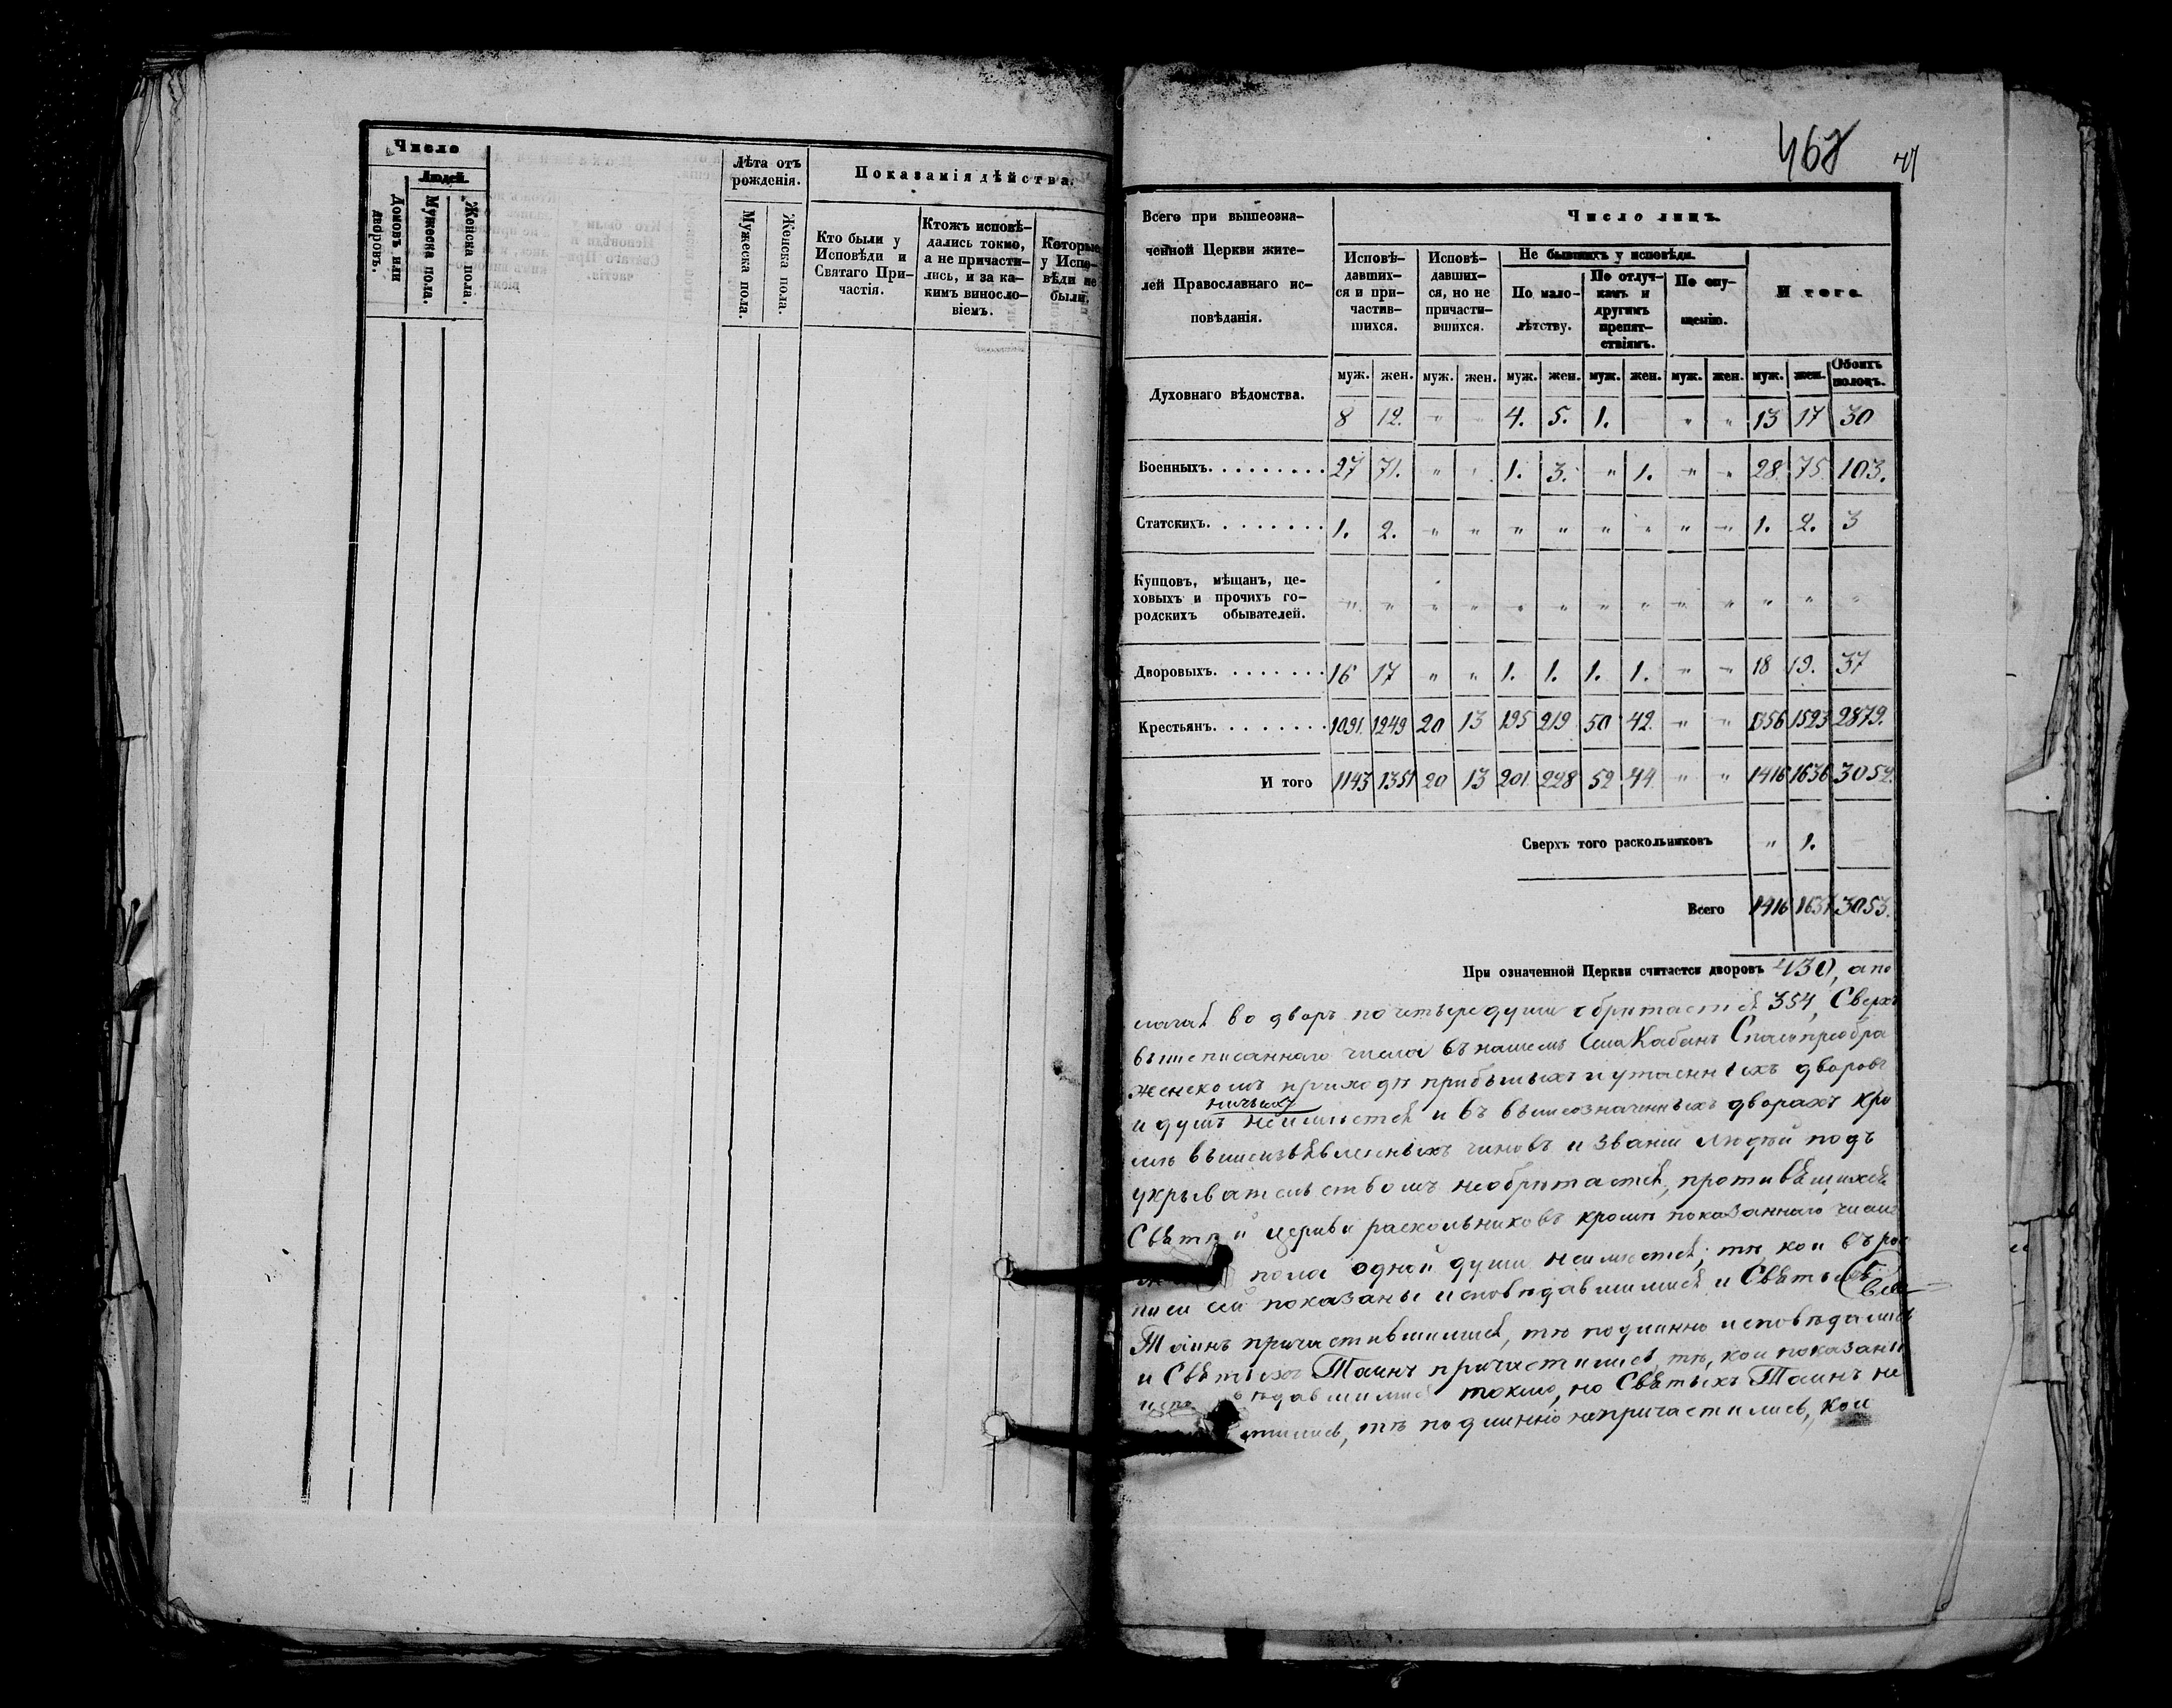 Число
Людей.
Домовъ или дворовъ.
Мужеска пола.
Женска пола.
Лѣта отъ рожденія.
Мужеска пола.
Женска пола.
Показанія дѣйства.
Кто были у Исповѣди и Святаго Причастія.
Ктожъ исповѣдались токмо, а не причастились, и за какимъ винословіемъ.
Которые у Исповѣди не были.
468
Всего при вышеозна-
ченной Церкви жите-
лей Православнаго ис-
повѣданія.
Число лицъ.
Исповѣ-давших-ся и при-частив-шихся.
Исповѣ-давших-ся, но не причасти-вшихся.
Не бывшихъ у исповѣди.
По мало-лѣтству.
По отлуч-камъ и другимъ препят-ствіямъ.
По опу-щенію.
Итого
муж. жен. муж. жен. муж. жен. муж. жен. муж. жен. муж. жен. Обоихъ половъ.
Духовнаго вѣдомства. 8 12. " " 4. 5. 1. " " 13 17 30
Военныхъ. 27 71. " " 1. 3. " 1. " " 28. 75. 103.
Статскихъ. 1. 2. " " " " " " " " 1. 2. 3
Купцовъ, мѣщанъ, це-
ховыхъ и прочихъ го-
родскихъ обывателей. " " " " " " " " " " " " "
Дворовыхъ. 16 17 " " 1. 1. 1. 1. " " 18 19. 37
Крестьянъ. 1091. 1249 20 13 195 219 50 42. " " 1356 1523 2879.
И того 1143 1351 20 13 201. 228 52 44. " " 1416 1636 3052.
Сверхъ того раскольниковъ " 1.
Всего 1416 1637 3053.
При означенной Церкви считается дворовъ 430, а по
лагая во дворъ по четыре души обрѣтается 354, Сверхъ
вышеписаннаго числа въ нашемъ Села Кабанъ Спасопреобра
женскомъ приходѣ прибылыхъ и утаенныхъ дворовъ
ничьихъ
и душъ неимѣется и въ вышеозначенныхъ дворахъ кро
мѣ вышеизъявленныхъ чиновъ и званій людей подъ
укрывательствомъ необрѣтается, противящихся
Святѣй церкви раскольниковъ кромѣ показаннаго числа
пола одной души неимѣется; тѣ, кои въ рос
писи сей показаны исповѣдавшимися и Святыхъ
Таинъ причастившимися, тѣ подлинно исповѣдались
и Святыхъ Таинъ причастились, тѣ, кои показаны
исповѣдавшимися токмо, но Святыхъ Таинъ не
тились, тѣ подлинно непричастились, кои